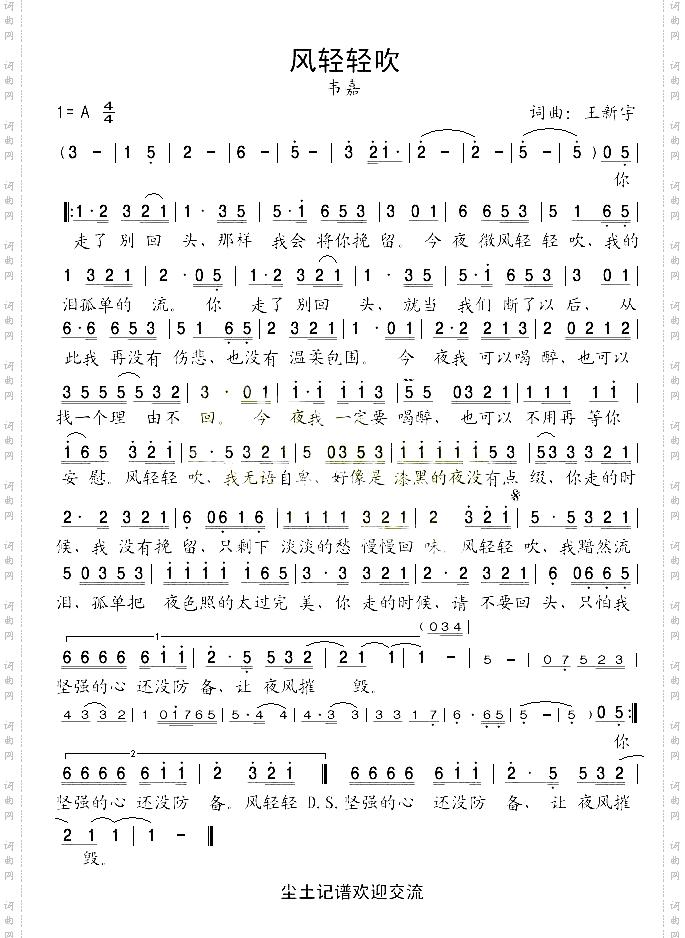 风轻轻吹
韦嘉
1= A 4/4
词曲：王新宇
(3 - | 1 5 | 2 - | 6 - | 5 - | 3 2i· | 2 - | 2 - | 5 - | 5 ) 05 |
你
‖:1·2 321 | 1· 35 | 5·i 653 | 3 01 | 6 653 | 5 1 65 |
走了 别回 头、那样 我会 将你挽 留。今 夜 微风轻 轻 吹、我的
1 321 | 2 ·05 | 1·2 321 | 1· 35 | 5·i 653 | 3 01 |
泪孤单的 流。你 走了 别回 头、就当 我们 断了以 后、从
6·6 653 | 51 65 | 2 321 | 1 ·01 | 2·2 213 | 2 0212 |
此我 再没有 伤悲、也没有 温柔包围。 今 夜我 可以喝 醉、也可以
3555532 | 3 · 01 | i·i ii3 | 55 0321 | 111 1i |
找一个理 由不 回。今 夜我 一定要 喝醉、也可以 不用再 等你
i65 32i | 5·5321 | 5 0353 | iiiii53 | 533321 |
安 慰。风轻轻 吹、我无语自卑、好像是 漆黑的夜没有点 缀、你走的时
2·2 321 | 6 0616 | 1111 321 | 2 32i | 5·5321 |
候、我 没有挽 留、只剩下 淡淡的愁 慢慢回 味。风轻轻 吹、我黯然流
50353 | iiii i65 | 3·3 321 | 2·2 321 | 6 0665 |
泪、孤单把 夜色照的太过完 美、你 走的时候、请 不要回 头、只怕我
1
(034
6666 6ii | 2·5 532 | 21 1 | 1 - | 5 - | 07523 |
坚强的心 还没防 备、让 夜风摧 毁。
4332 | 1 0i765 | 5·4 4 | 4·3 3 | 33 17 | 6·65 | 5 - | 5 ) 05:‖
你
2
6666 6ii | 2 32i ‖ 6666 6ii | 2· 5 532 |
坚强的心 还没防 备。风轻轻 D.S.坚强的心 还没防 备、让 夜风摧
21 1 | 1 - ‖
毁。
尘土记谱欢迎交流
词曲网